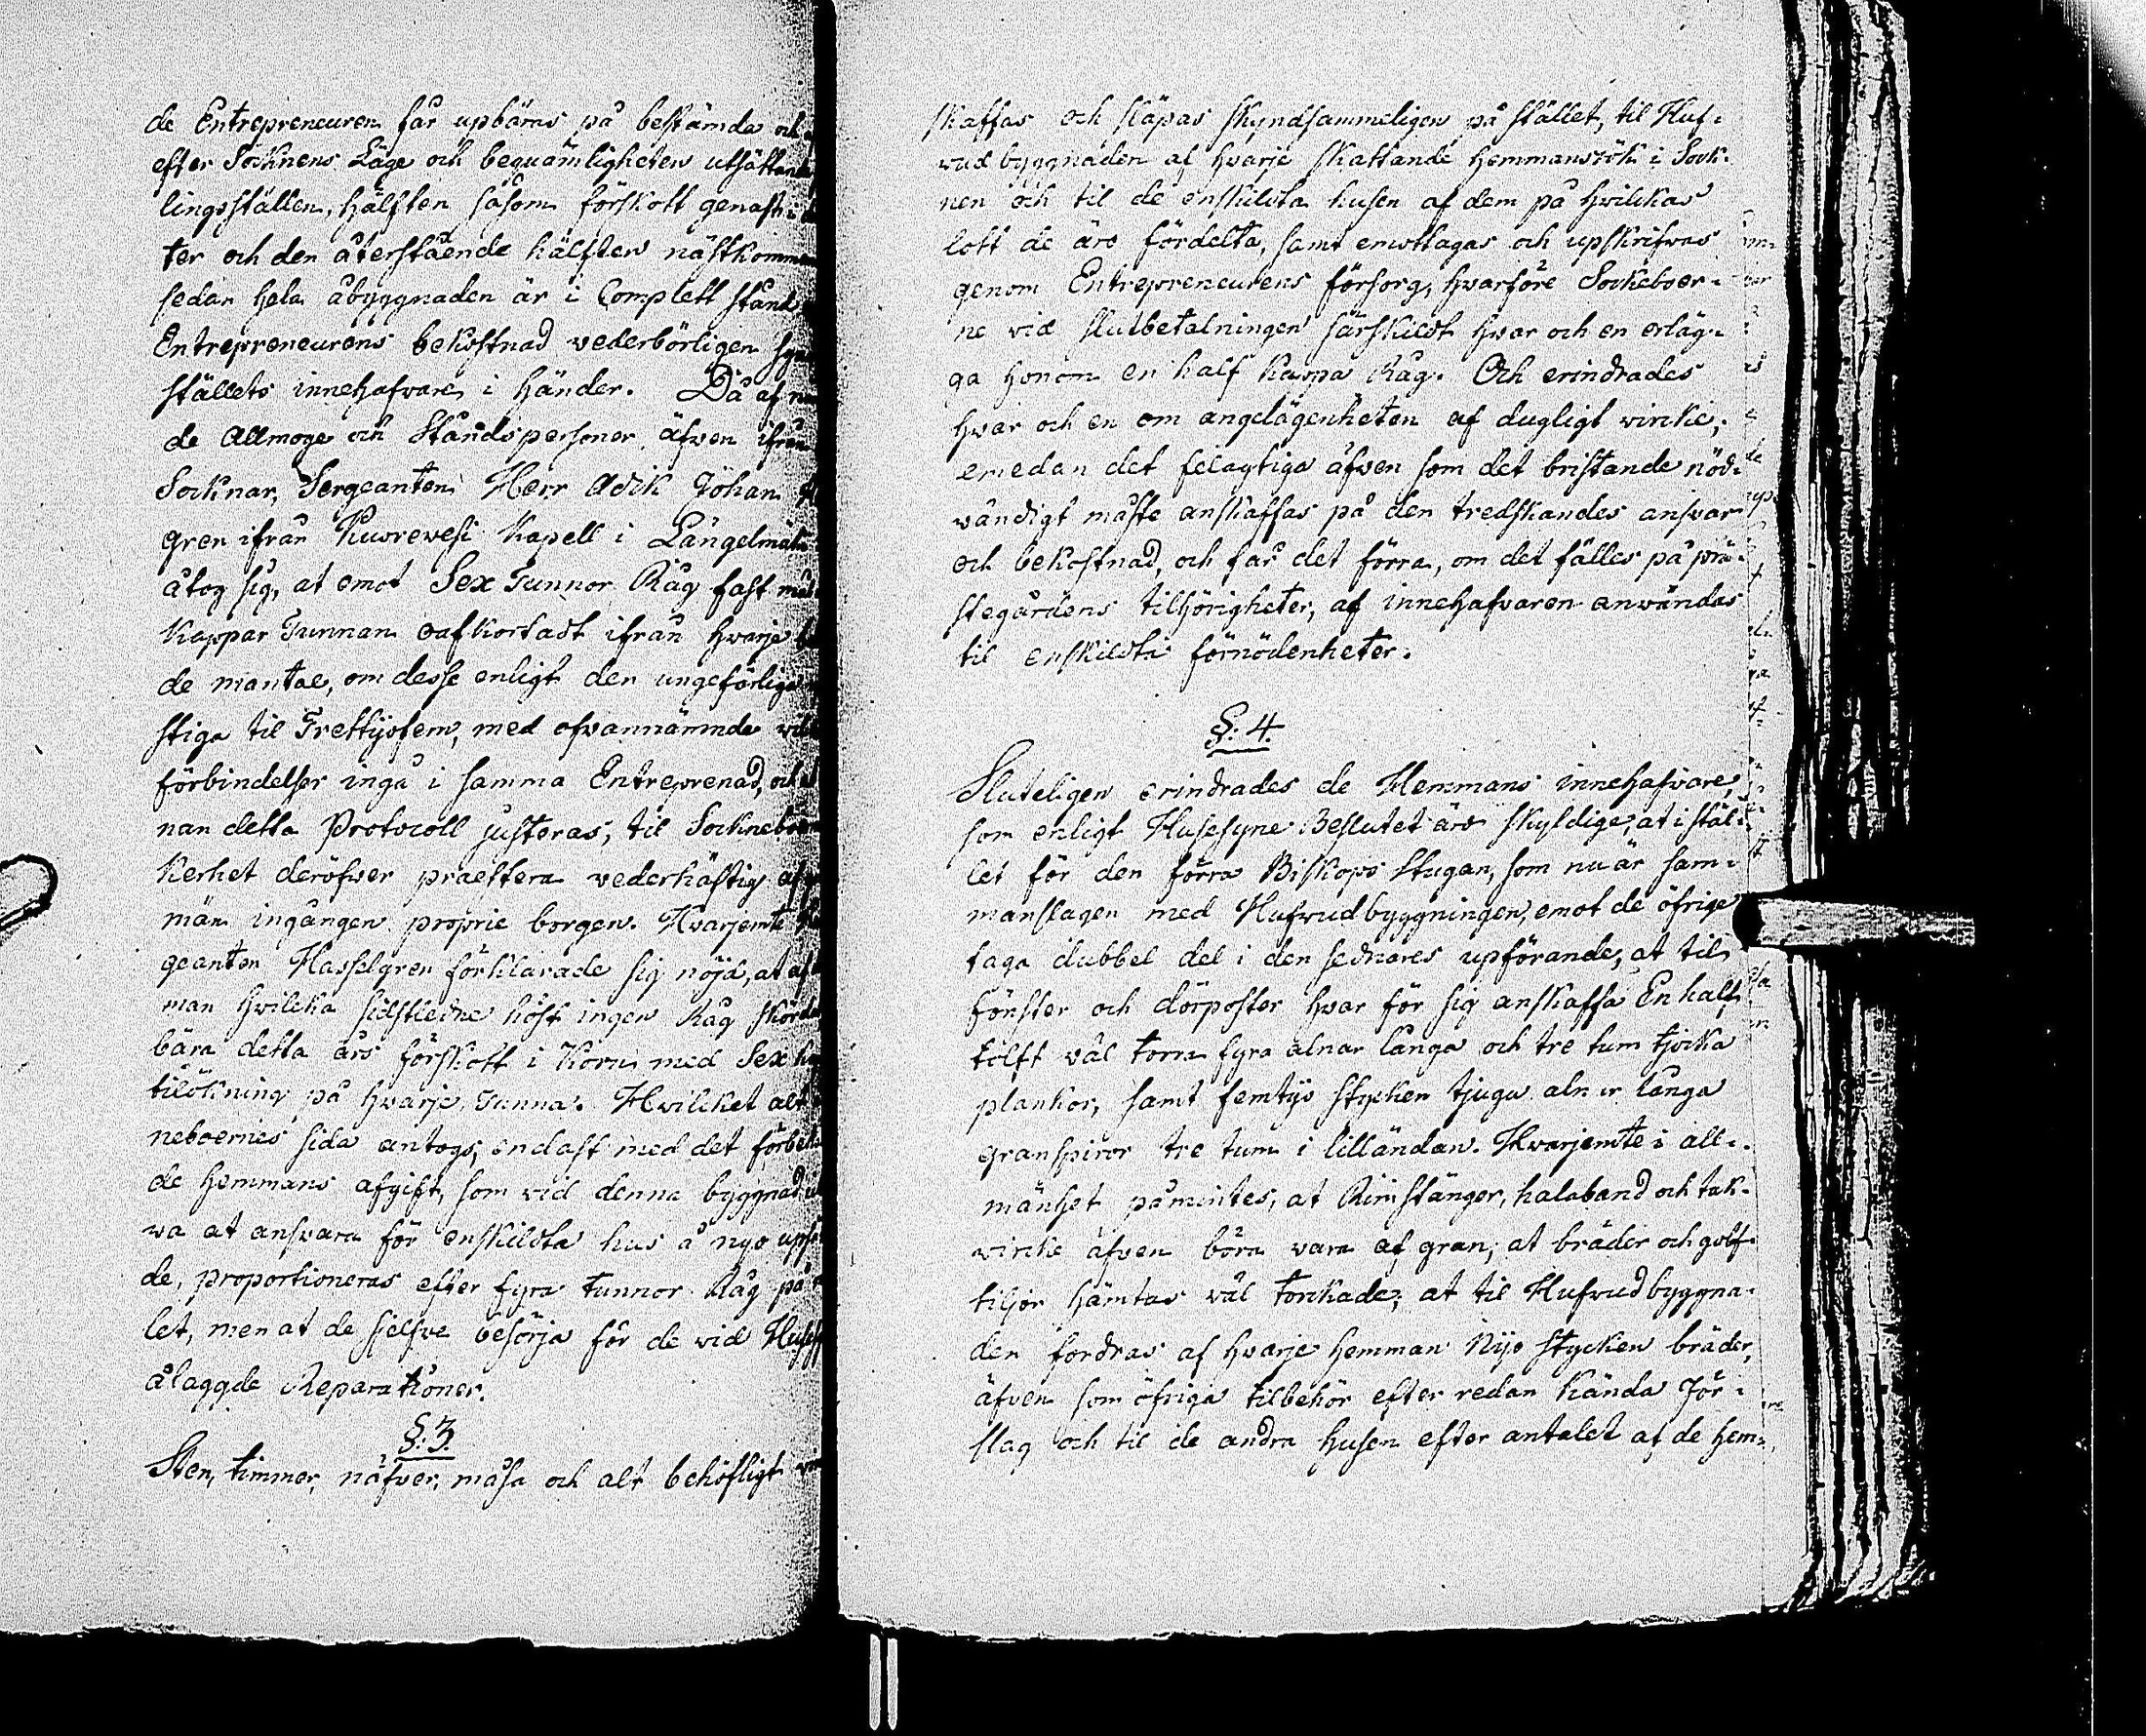 de Entrepreneuren får upbäras på bestämda och
efter Socknens Läge och bequämligheten utsättande
lingsställen, hälften såsom förskott genast i
ter och den återstående hälften nästkomm
sedan hela åbyggnaden är i Complett stånd
Entrepreneurens bekostnad vederbörligen syn
ställets innehafvare i händer. Då af
de Allmoge och Ståndspersoner äfven ifrån
Socknar, Sergeanten Herr Adik Johan
gren ifrån Kuorevesi Kapell i Längelmäki
åtog sig, at emot Sex Tunnor Råg fast
Kappar Tunnan oafkortadt ifrån hvarje
de mantal, om desse enligt den ungeförliga
stiga til Trettijofem, med ofvannämnde
förbindelser ingå i samma Entreprenad, och
nan detta Protocoll justeras, til Sockneboer
kerhet deröfver praestera vederhäftig af
män ingången proprie borgen. Hvarjemte
geanten Hasselgren förklarade sig nöjd, at af
man hvilcka sidstledne höst ingen Råg skörda
bära detta års förskott i Korn med Sex
tilökning på hvarje Tunna. Hvilcket alt
neboernes sida antogs, endast med det förbeh
de hemmans afgift, som vid denna byggnad
va at ansvara för enskildta hus å nyo upf
de, proportioneras efter fyra tunnor Råg på
let, men at de sjelfve besörja för de vid Hus
ålaggde Reparationer.
§. 3.
Sten, timmer, näfver, måsa och alt behöfligt
skaffas och släpas skyndsammeligen på stället, til Huf-
vudbyggnaden af hvarje skattande hemmansrök i Sock-
nen och til de enskildta husen af dem på hvilckas
lott de äro fördelta, samt emottagas och upskrifvas
genom Entrepreneurens försorg, hvarföre Sockeboer-
ne vid slutbetalningen särskildt hvar och en erläg-
ga honom en half kappa Råg. Och erindrades
hvar och en om angelägenheten af dugligt vircke,
emedan det felagtiga äfven som det bristande nöd-
vändigt måste anskaffas på den tredskandes ansvar
och bekostnad, och får det förra, om det fälles på prä-
stegårdens tilhörigheter, af innehafvaren användas
til enskildta förnödenheter.
§. 4.
Sluteligen erindrades de Hemmans innehafvare,
som enligt Husesyne Beslutet äro skyldige, at i stäl-
let för den förra Biskops Stugan, som nu är sam-
manslagen med Hufvudbyggningen, emot de öfrige
taga dubbel del i den sednares upförande, at til
fönster och dörposter hvar för sig anskaffa En half
tolft väl torra fyra alnar långa och tre tum tjocka
plankor, samt femtijo stycken tjugu alnar långa
granspiror tre tum i lilländan. Hvarjemte i all-
mänhet påmintes, at Rimstänger, halaband och tak-
vircke äfven böra vara af gran, at bräder och golf-
tiljor hämtas väl torckade; at til Hufvudbyggna-
den fordras af hvarje hemman Nijo stycken bräder,
äfven som öfriga tilbehör efter redan kända För-
slag och til de andra husen efter antalet af de hem-